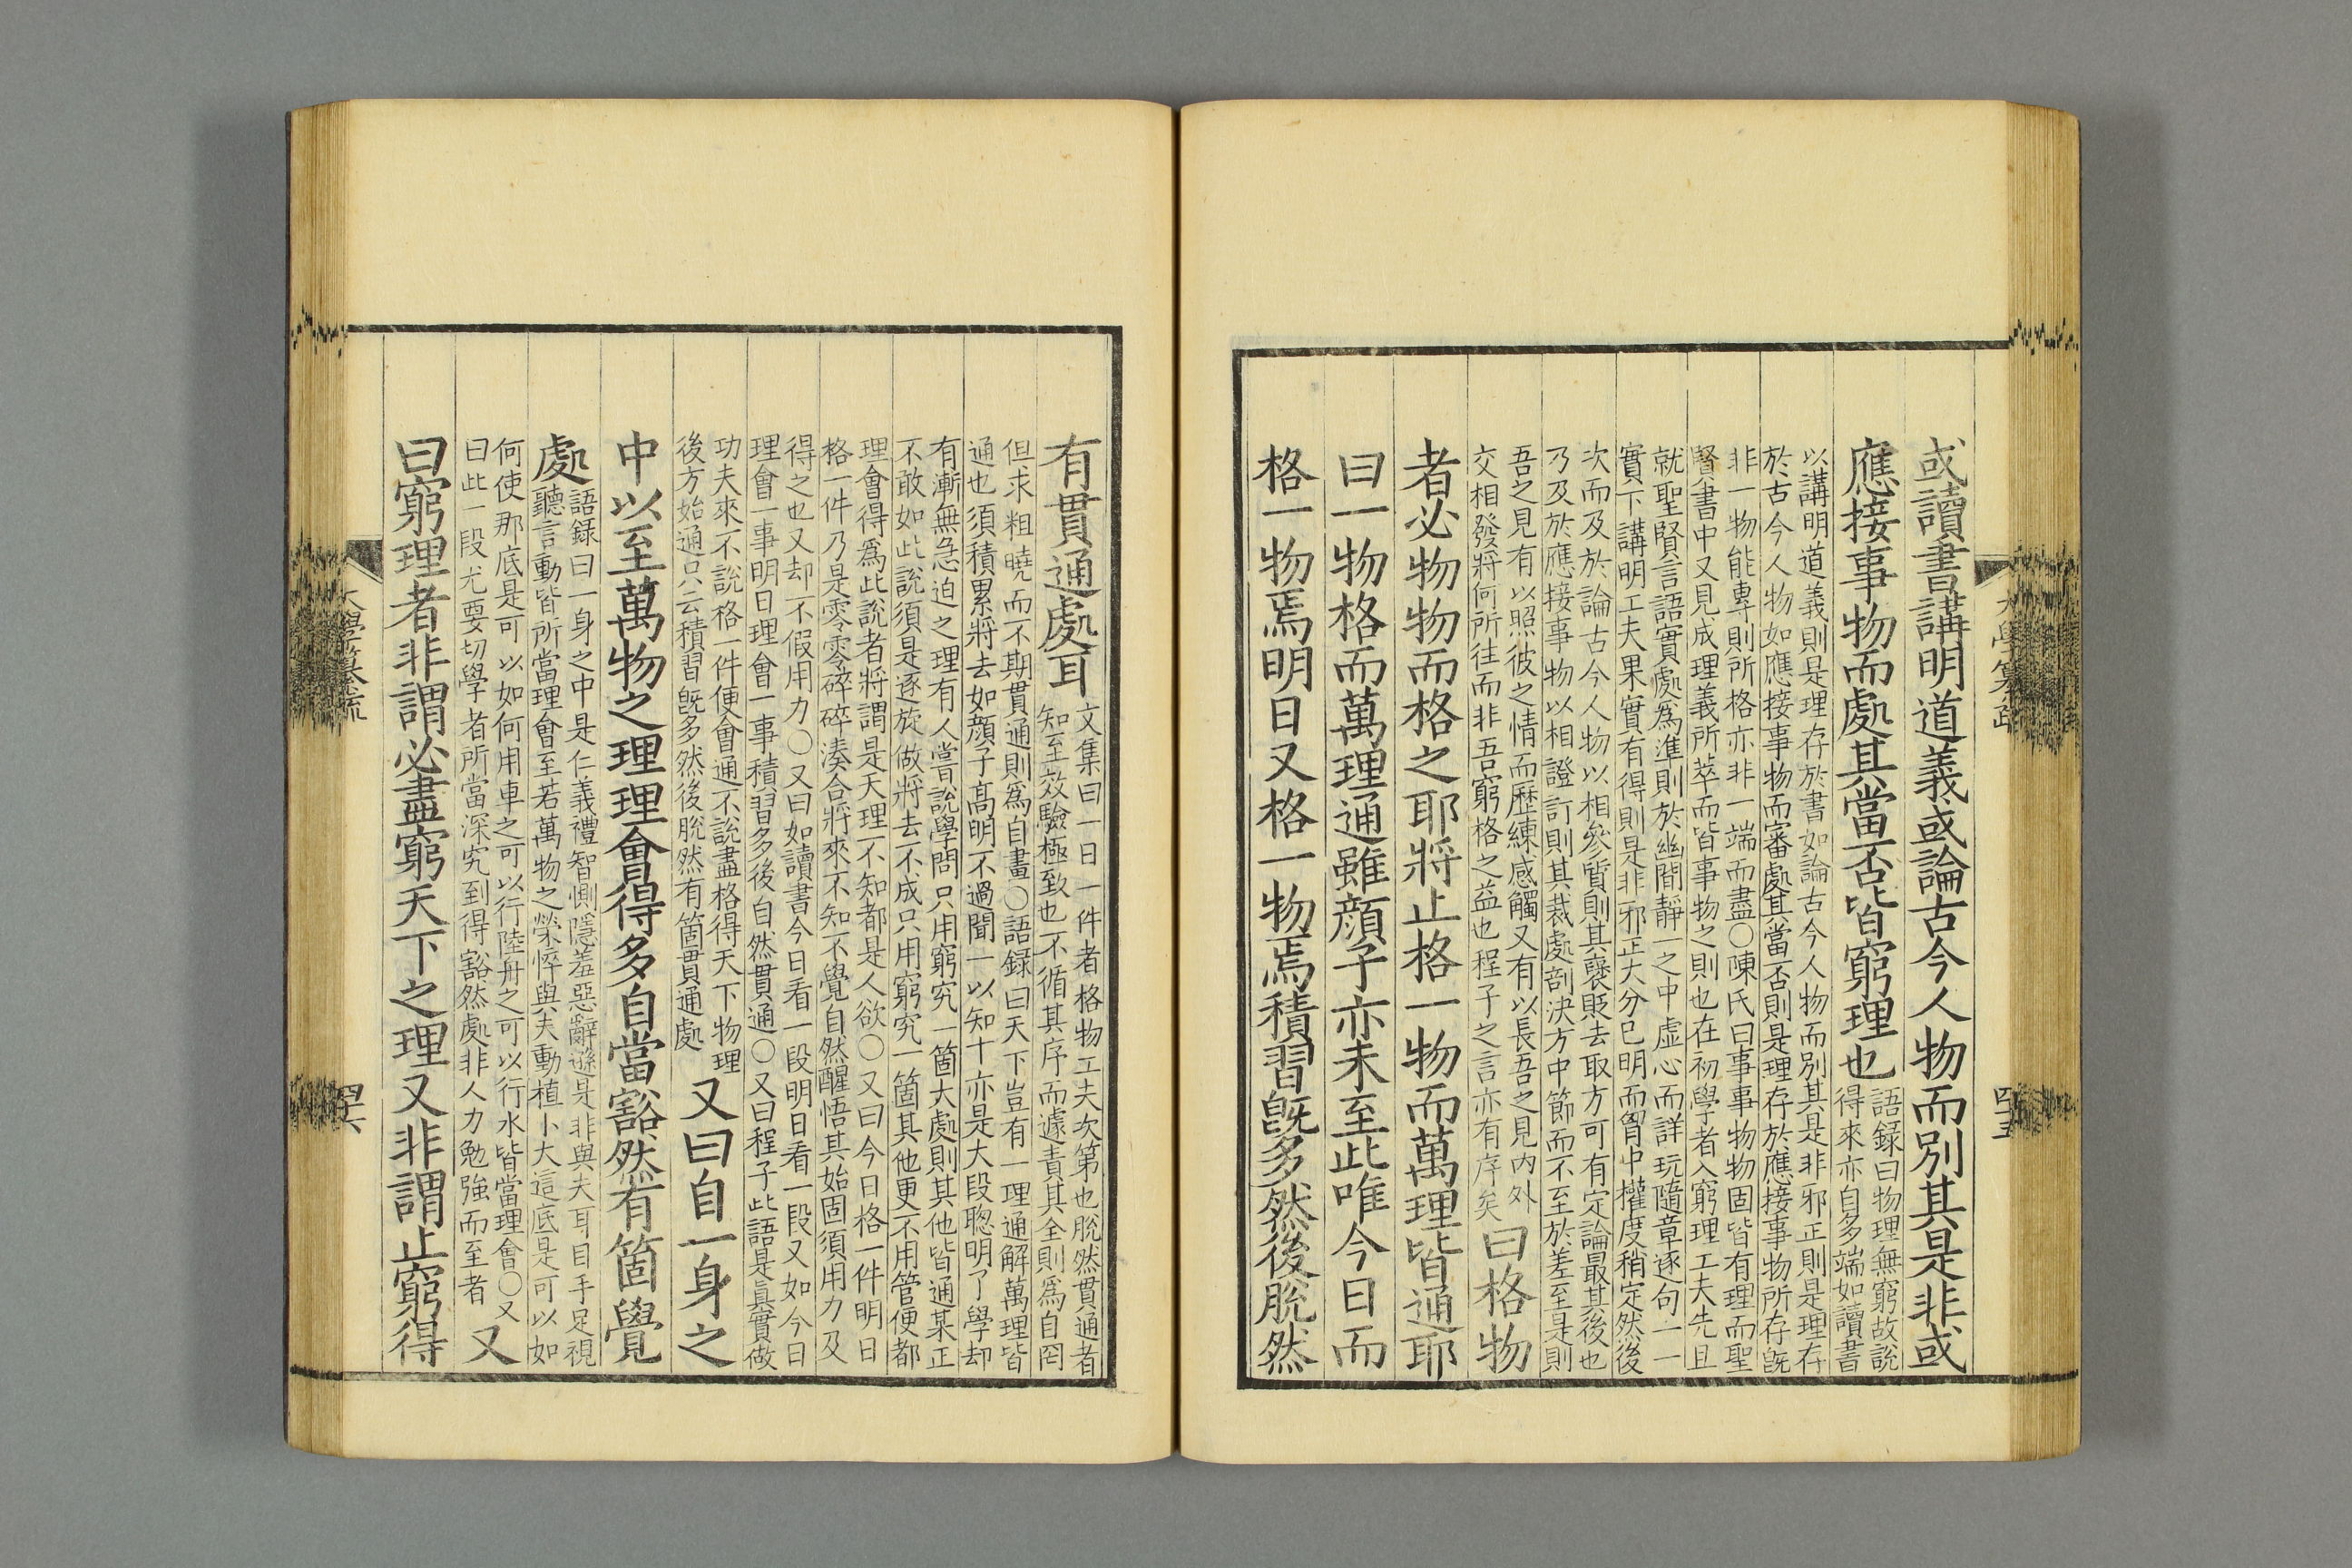 或讀書講明道義或論古今人物而別其是非或
應接事物而處其當否皆窮理也
語録曰物理無窮故說
得來亦自多端如讀書
以講明道義則是理存於書如論古今人物而別其是非邪正則是理存
於古今人物如應接事物而審處其當否則是理存於應接事物所存旣
非一物能專則所格亦非一端而盡○陳氏曰事事物物固皆有理而聖
賢書中又見成理義所萃而皆事物之則也在初學者入窮理工夫先且
就聖賢言語實處爲準則於幽閒靜一之中虛心而詳玩隨章逐句一一
實下講明工夫果實有得則是非邪正大分已明而胷中權度稍定然後
次而及於論古今人物以相參質則其襃貶去取方可有定論最其後也
乃及於應接事物以相證訂則其裁處剖決方中節而不至於差至是則
吾之見有以照彼之情而歷練感觸又有以長吾之見內外
交相發將何所往而非吾窮格之益也程子之言亦有序矣
曰格物
者必物物而格之耶將止格一物而萬理皆通耶
曰一物格而萬理通雖顔子亦未至此唯今日而
格一物焉明日又格一物焉積習旣多然後脫然
大學纂疏
四十五
有貫通處耳
文集曰一日一件者格物工夫次第也脫然貫通者
知至效驗極致也不循其序而遽責其全則爲自罔
但求粗曉而不期貫通則爲自畫○語録曰天下豈有一理通解萬理皆
通也須積累將去如顔子高明不過聞一以知十亦是大段聰明了學却
有漸無急迫之理有人嘗說學問只用窮究一箇大處則其他皆通某正
不敢如此說須是逐旋做將去不成只用窮究一箇其他更不用管便都
理會得爲此說者將謂是天理不知都是人欲○又曰今日格一件明日
格一件乃是零零碎碎湊合將來不知不覺自然醒悟其始固須用力及
得之也又却不假用力○又曰如讀書今日看一段明日看一段又如今日
理會一事明日理會一事積習多後自然貫通○又曰程子此語是眞實做
功夫來不說格一件便會通不說盡格得天下物理
後方始通只云積習旣多然後脫然有箇貫通處
又曰自一身之
中以至萬物之理理會得多自當豁然有箇覺
處
語録曰一身之中是仁義禮智惻隱羞惡辭遜是非與夫耳目手足視
聽言動皆所當理會至若萬物之榮悴與夫動植小大這底是可以如
何使那底是可以如何用車之可以行陸舟之可以行水皆當理會○又
曰此一段尤要切學者所當深究到得豁然處非人力勉強而至者
又
曰窮理者非謂必盡窮天下之理又非謂止窮得
大學纂疏
四十六